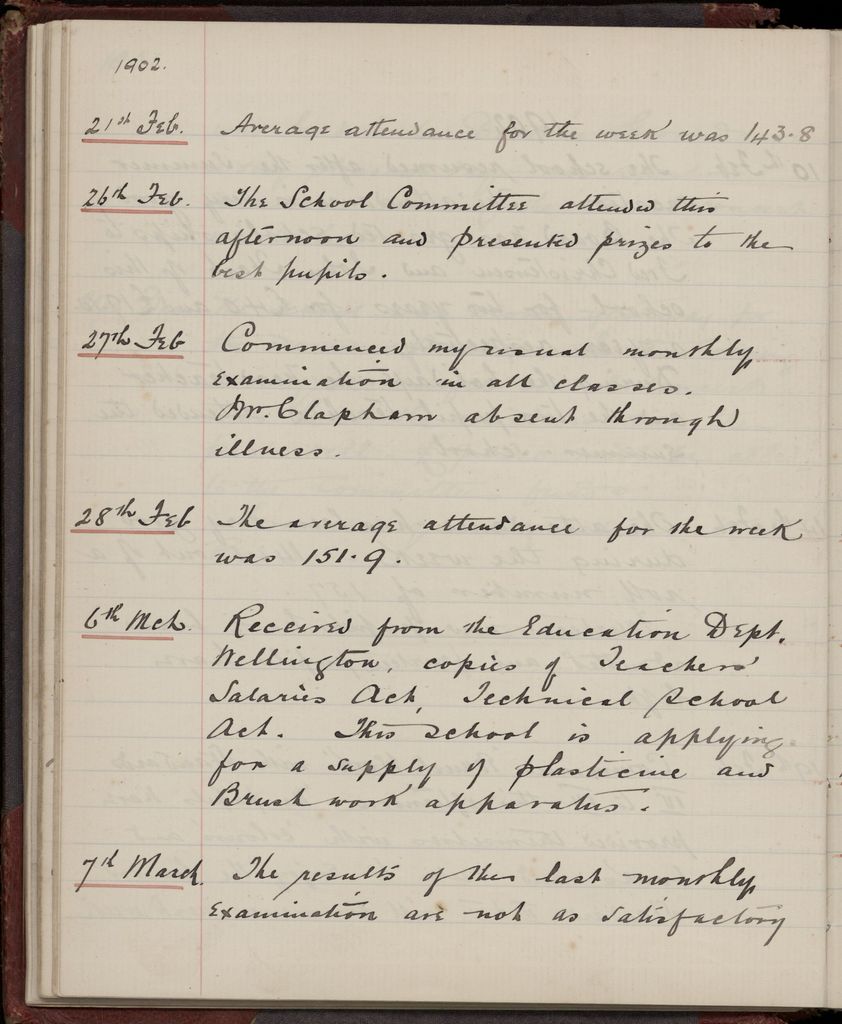 1902.
21st Feb. Average attendance for the week was 143.8
26th Feb. The School Committee attended this
afternoon and presented prizes to the
best pupils.
27th Feb Commenced my usual monthly
examination in all classes.
Mr. Clapham absent through
illness.
28th Feb The average attendance for the week
was 151.9.
6th Mch. Received from the Education Dept.
Wellington, copies of Teachers'
Salaries Act, Technical School
Act. This school is applying
for a supply of plasticine and
Brush work apparatus.
7th March. The results of the last monthly
examination are not as satisfactory